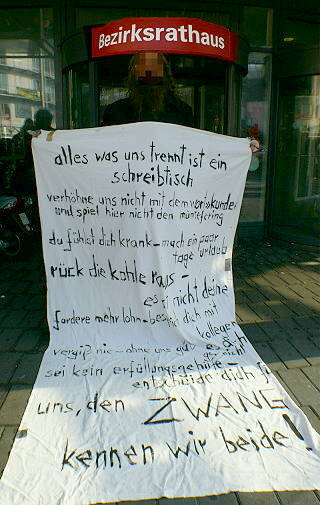 Bezirksrathaus
alles was uns trennt ist ein
schreibtisch
verhöhne uns nicht mit dem vorbekunden
und spiel hier nicht den müntefering
du fühlst dich krank – mach ein paar
tage urlaub
rück die kohle raus –
es ist nicht deine
fordere mehr lohn –
dich mit
kollegen
vergiß nie – ohne uns gäb es dich
gar nicht!
sei kein erfüllungsgehilfe –
entscheide dich für
uns, den ZWANG
kennen wir beide!